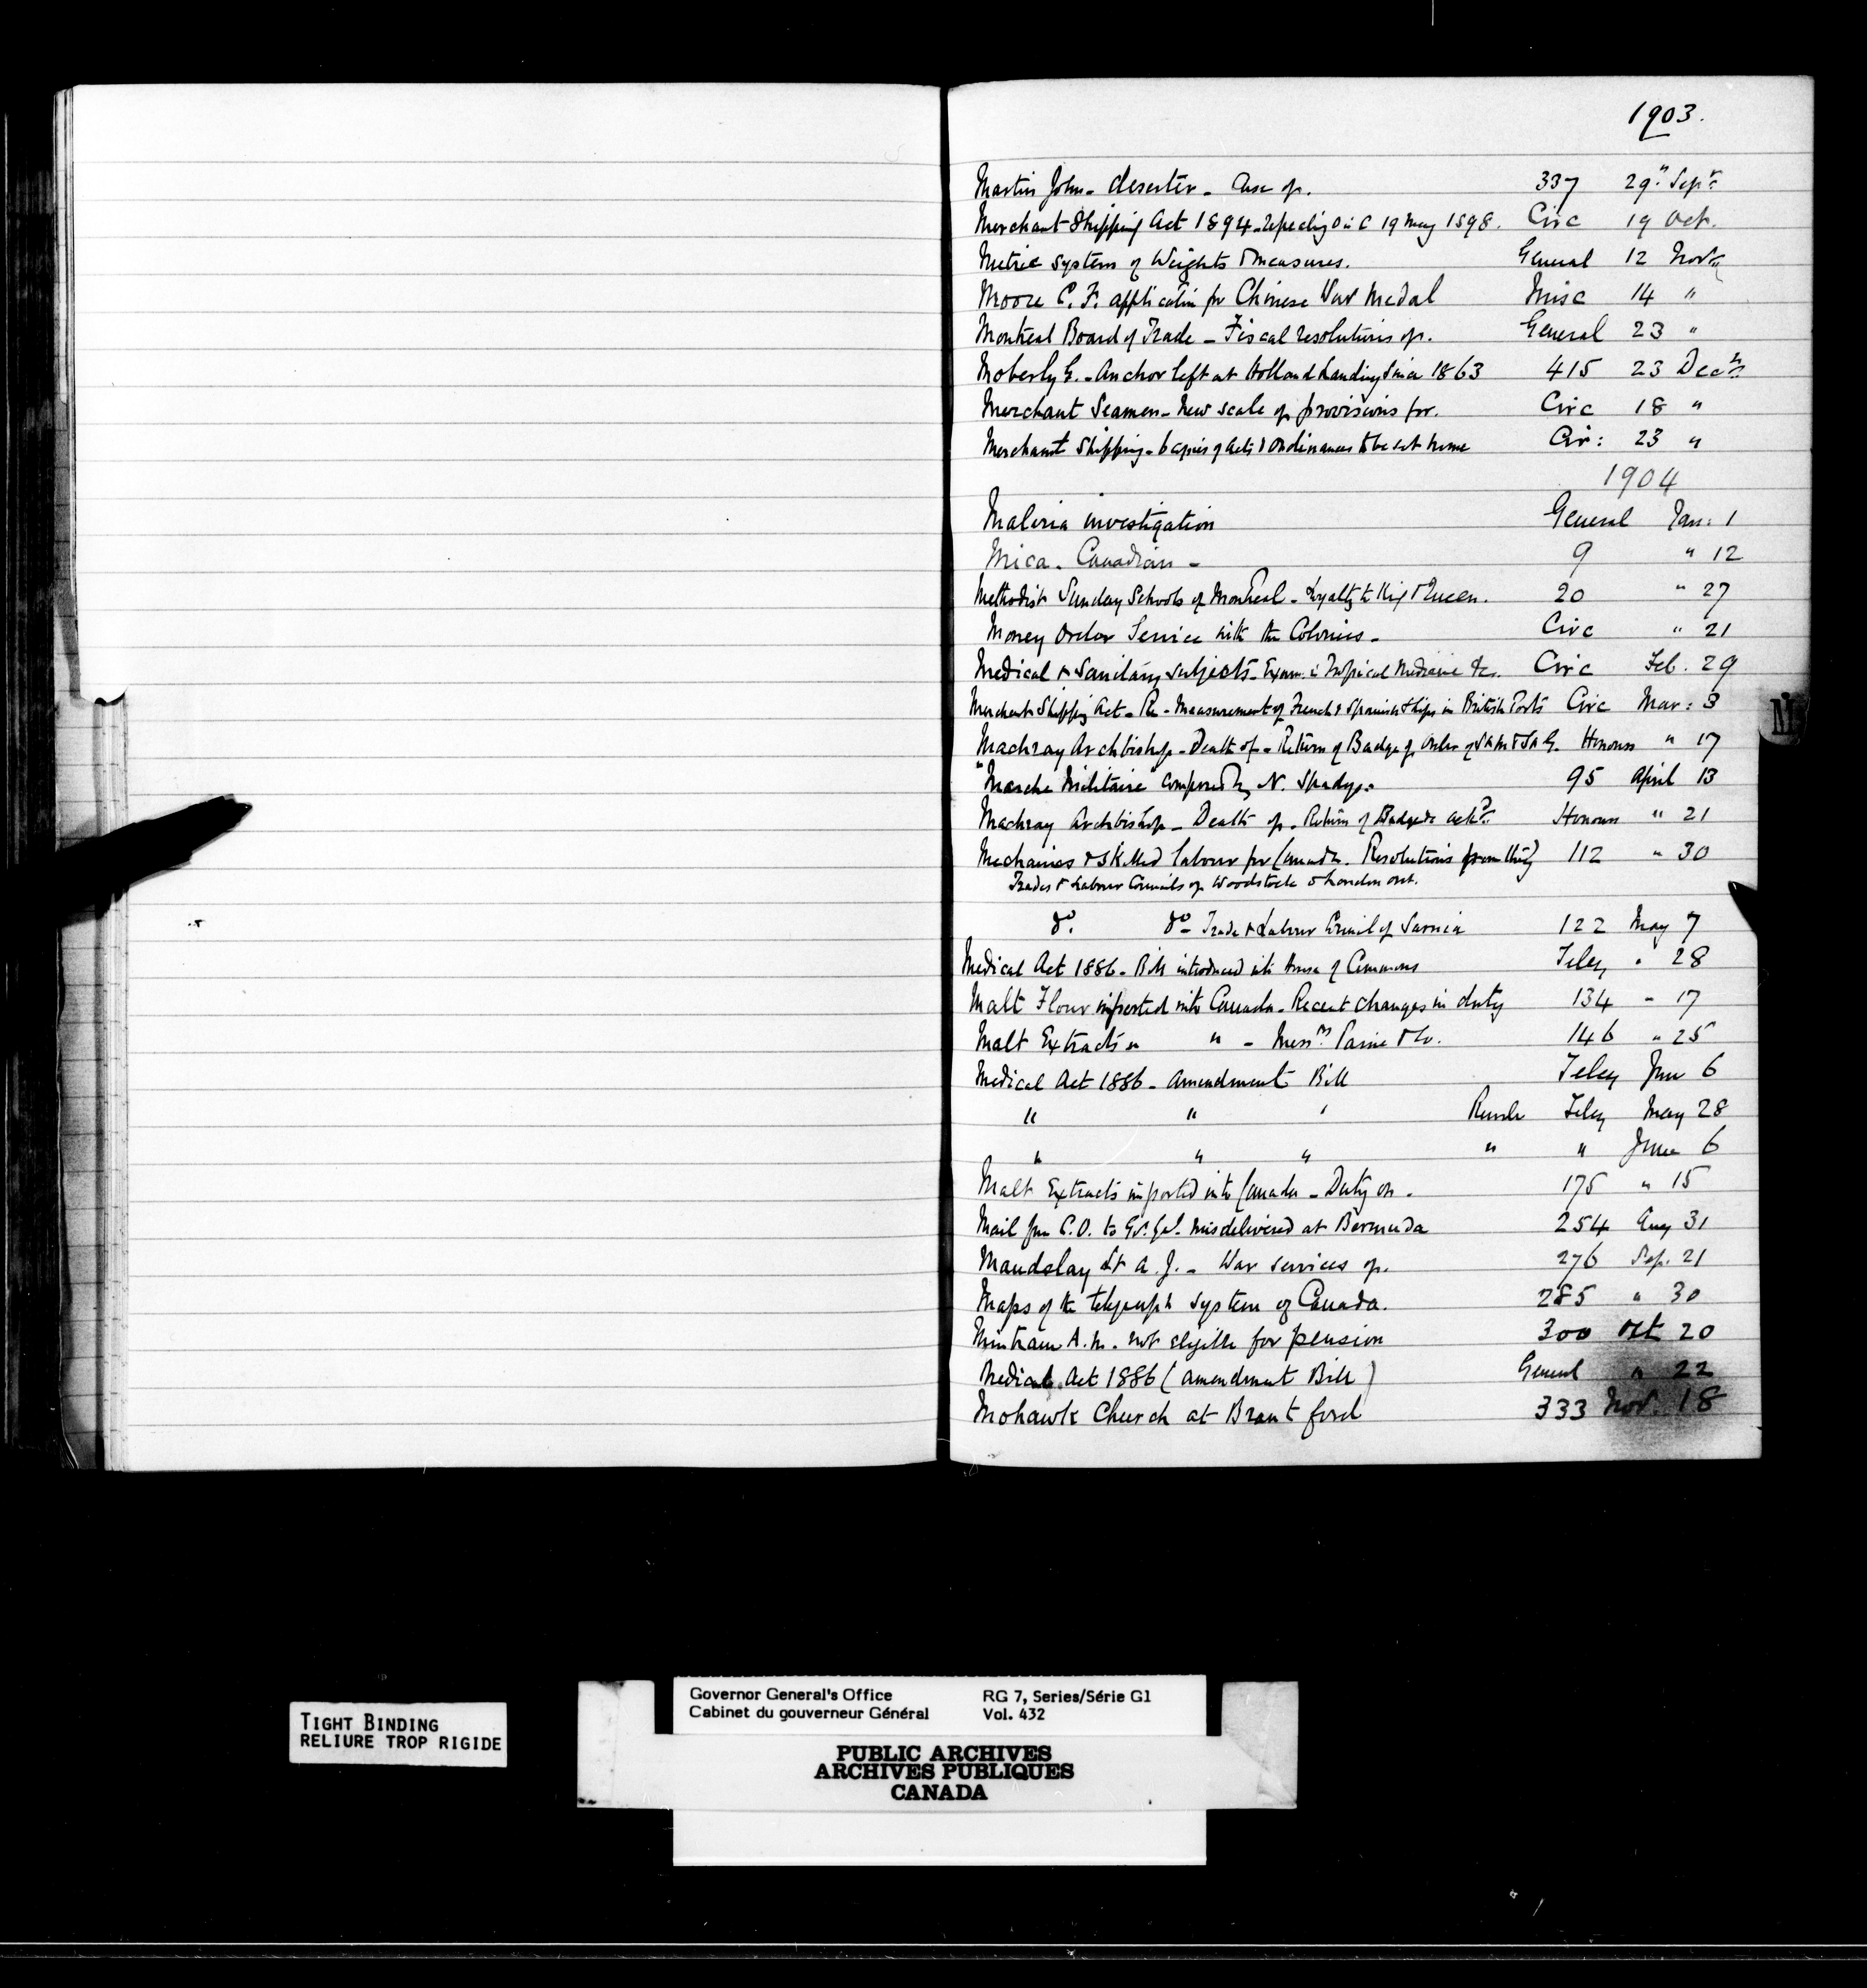 1903.
Martin John - deserter - Case of. 337 29th Septr
Merchant Shipping Act 1894 - repealing O in C 19 May 1898. Circ 19 Oct.
Metric System of Weights & measures. General 12 Novr
Moore C. F. application for Chinese War Medal Misc 14 "
Montreal Board of Trade - Fiscal resolutions of. General 23 "
Moberly G. - Anchor left at Holland Landing since 1863 415 23 Decr
Merchant Seamen - New scale of provisions for. Circ 18 "
Merchant Shipping - 6 copies of acts & Ordinances to be sent home Cir: 23 "
1904
Malaria investigation General Jan: 1
Mica - Canadian - 9 " 12
Methodist Sunday Schools of Montreal - Loyalty to King & Queen. 20 " 27
Money Order Service with the Colonies - Circ " 21
Medical & Sanitary subjects - Exam. in Tropical Medicine &c. Circ Feb. 29
Merchant Shipping Act - Re - Measurement of French & Spanish Ships in British Ports Circ Mar: 3
Machray Archbishop - Death of - Return of Badge of Order of St M & St G. Honours " 17
"Marche Militaire" composed by N. 95 April 13
Machray Archbishop - Death of - Return of Badge ackd. Honours " 21
Mechanics & Skilled labour for Canada. Resolutions from the 112 " 30
Trades & Labour Councils of Woodstock & London Ont.
do. do - Trade & Labour Council of Sarnia 122 May 7
Medical Act 1886 - Bill introduced into House of Commons Teleg " 28
Malt Flour imported into Canada - Recent changes in duty 134 " 17
Malt Extracts " " - Messrs Paine & Co. 146 " 25
Medical Act 1886 - Amendment Bill Teleg June 6
" " " Teleg May 28
" " " " " June 6
Malt Extracts imported into Canada - Duty on. 175 " 15
Mail from C.O. to Gr. Gel. misdelivered at Bermuda 254 Aug 31
Maudslay Lt A. J. - War services of. 276 Sep. 21
Maps of the telegraph system of Canada. 285 " 30
A. M. - not eligible for pension 300 Oct 20
Medical Act 1886 (Amendment Bill) General " 22
Mohawk Church at Brantford 333 Nov. 18
M
TIGHT BINDING
RELIURE TROP RIGIDE
Governor General's Office RG 7, Series/Série G1
Cabinet du gouverneur Général Vol. 432
PUBLIC ARCHIVES
ARCHIVES PUBLIQUES
CANADA